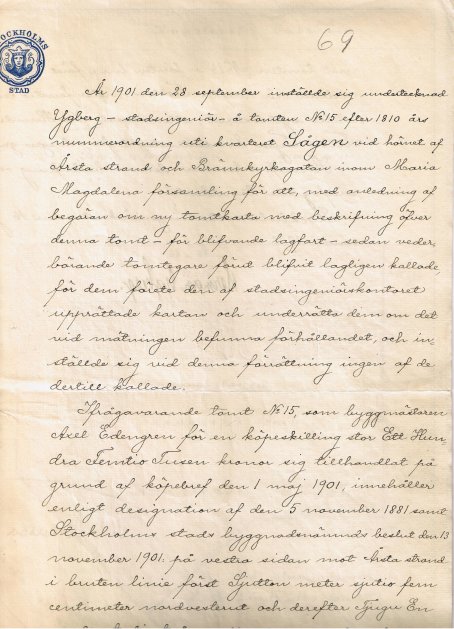 69
STOCKHOLMS
STAD
År 1901 den 28 september inställde sig undertecknad
Ygberg – stadsingeniör – å tomten No 15 efter 1810 års
nummerordning uti kvarteret Sågen vid hörnet af
Årsta strand och Brännkyrkagatan inom Maria
Magdalena församling för att, med anledning af
begäran om ny tomtkarta med beskrifning öfver
denna tomt – för blifvande lagfart – sedan veder-
börande tomtegare förut blifvit lagligen kallade,
för dem förete den af stadsingeniörskontoret
upprättade kartan och underrätta dem om det
vid mätningen befunna förhållandet, och in-
ställde sig vid denna förrättning ingen af de
dertill kallade.
Ifrågavarande tomt No 15, som byggmästaren
Axel Edengren för en köpeskilling stor Ett Hun-
dra Femtio Tusen kronor sig tillhandlat på
grund af köpebref den 1 maj 1901, innehåller
enligt designation af den 5 november 1881 samt
Stockholms stads byggnadsnämnds beslut den 13
november 1901: på vestra sidan mot Årsta strand
i bruten linie först Sjutton meter sjutio fem
centimeter nordvesterut och derefter Tjugu En